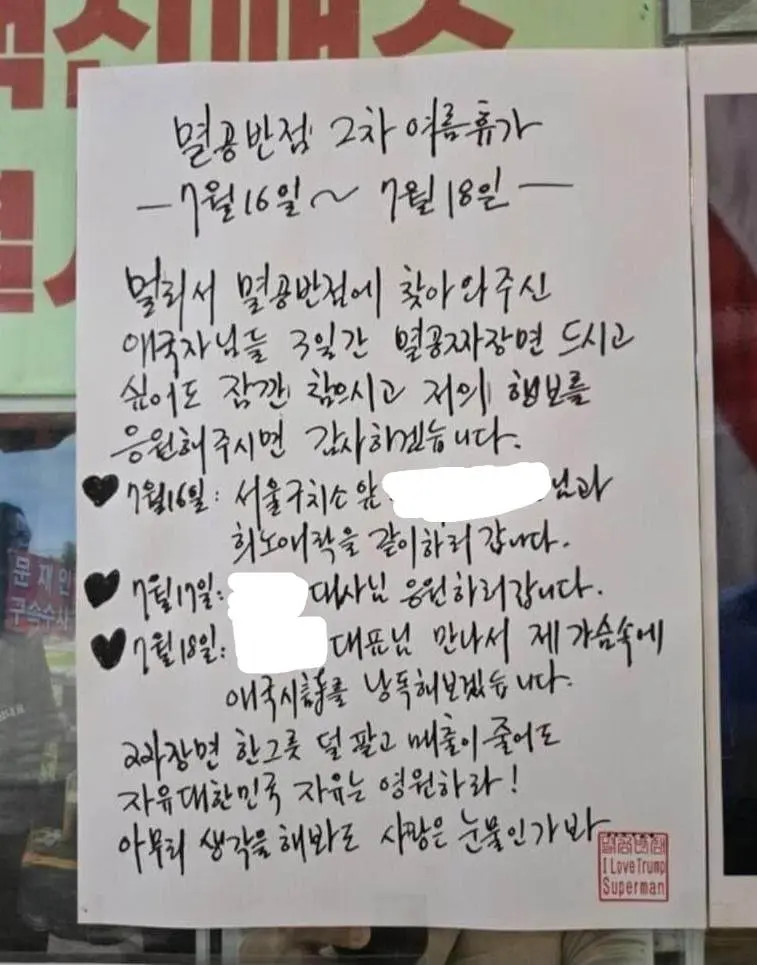 멸공반점 2차 여름휴가
- 7월16일 ~ 7월18일 -
멀리서 멸공반점에 찾아와주신
애국자님들 3일간 멸공짜장면 드시고
싶어도 잠깐 참으시고 저의 행보를
응원해주시면 감사하겠습니다.
♥ 7월16일: 서울구치소 앞 님과
희노애락을 같이하러 갑니다.
♥ 7월17일: 대사님 응원하러갑니다.
♥ 7월18일: 대표님 만나서 제 가슴속에
애국시詩를 낭독해보겠습니다.
짜장면 한그릇 덜 팔고 매출이 줄어도
자유대한민국 자유는 영원하라!
아무리 생각을 해봐도 사랑은 눈물인가봐
멸공반점
I Love Trump
Superman
문재인
구속수사